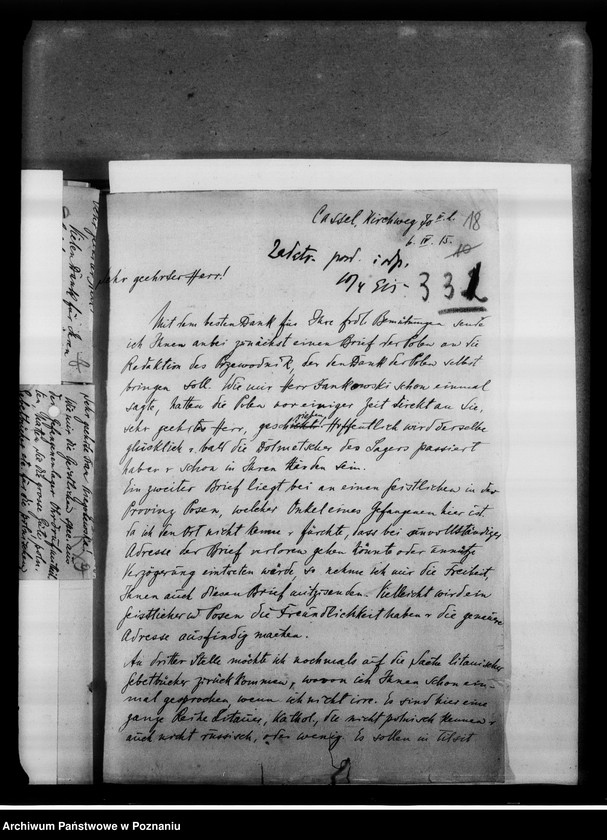 Cassel, Kirchweg 80 II. l.
18
6. IV. 15.
10
10/4
332
Sehr geehrter Herr!
Mit dem besten Dank für Ihre frdl. Bemühungen sende
ich Ihnen anbei zunächst einen Brief der Polen an die
Redaktion des Przewodnik, der den Dank der Polen selbst
bringen soll. Wie mir Herr Jankowski schon einmal
sagte, hatten die Polen vor einiger Zeit direkt an Sie,
sehr geehrter Herr, geschrieben. Hoffentlich wird derselbe
glücklich bald die Dolmetscher des Lagers passiert
haben & schon in Ihren Händen sein.
Ein zweiter Brief liegt bei an einen Geistlichen in der
Provinz Posen, welcher Onkel eines Gefangenen hier ist.
Da ich den Ort nicht kenne & fürchte, dass bei unvollständiger
Adresse der Brief verloren gehen könnte oder unnütze
Verzögerung eintreten würde, so nehme ich mir die Freiheit,
Ihnen auch diesen Brief mitzusenden. Vielleicht wird ein
Geistlicher in Posen die Freundlichkeit haben & die genaue
Adresse ausfindig machen.
An dritter Stelle möchte ich nochmals auf die Sache litauischer
Gebetbücher zurückkommen, wovon ich Ihnen schon ein-
mal gesprochen wenn ich nicht irre. Es sind hier eine
ganze Reihe Litauer, kathol., die nicht polnisch kennen &
auch nicht russisch, oder wenig. Es sollen in Tilsit
Vielen Dank für Ihren
Archiwum Państwowe w Poznaniu